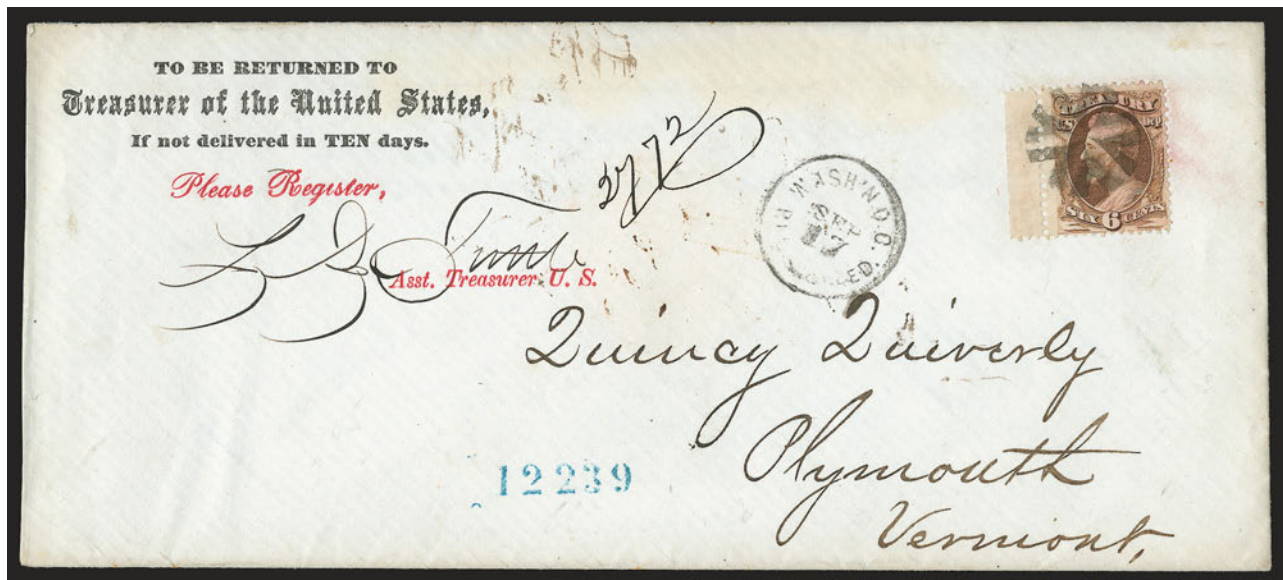 TO BE RETURNED TO
Treasurer of the United States,
If not delivered in TEN days.
Please Register,
2772
L B Tuttle
Asst. Treasurer U. S.
WASH'N. D.C.
SEP
17
TREASURY
U.S. DEP.
SIX 6 CENTS
Quincy Quiverly
Plymouth
Vermont,
12239